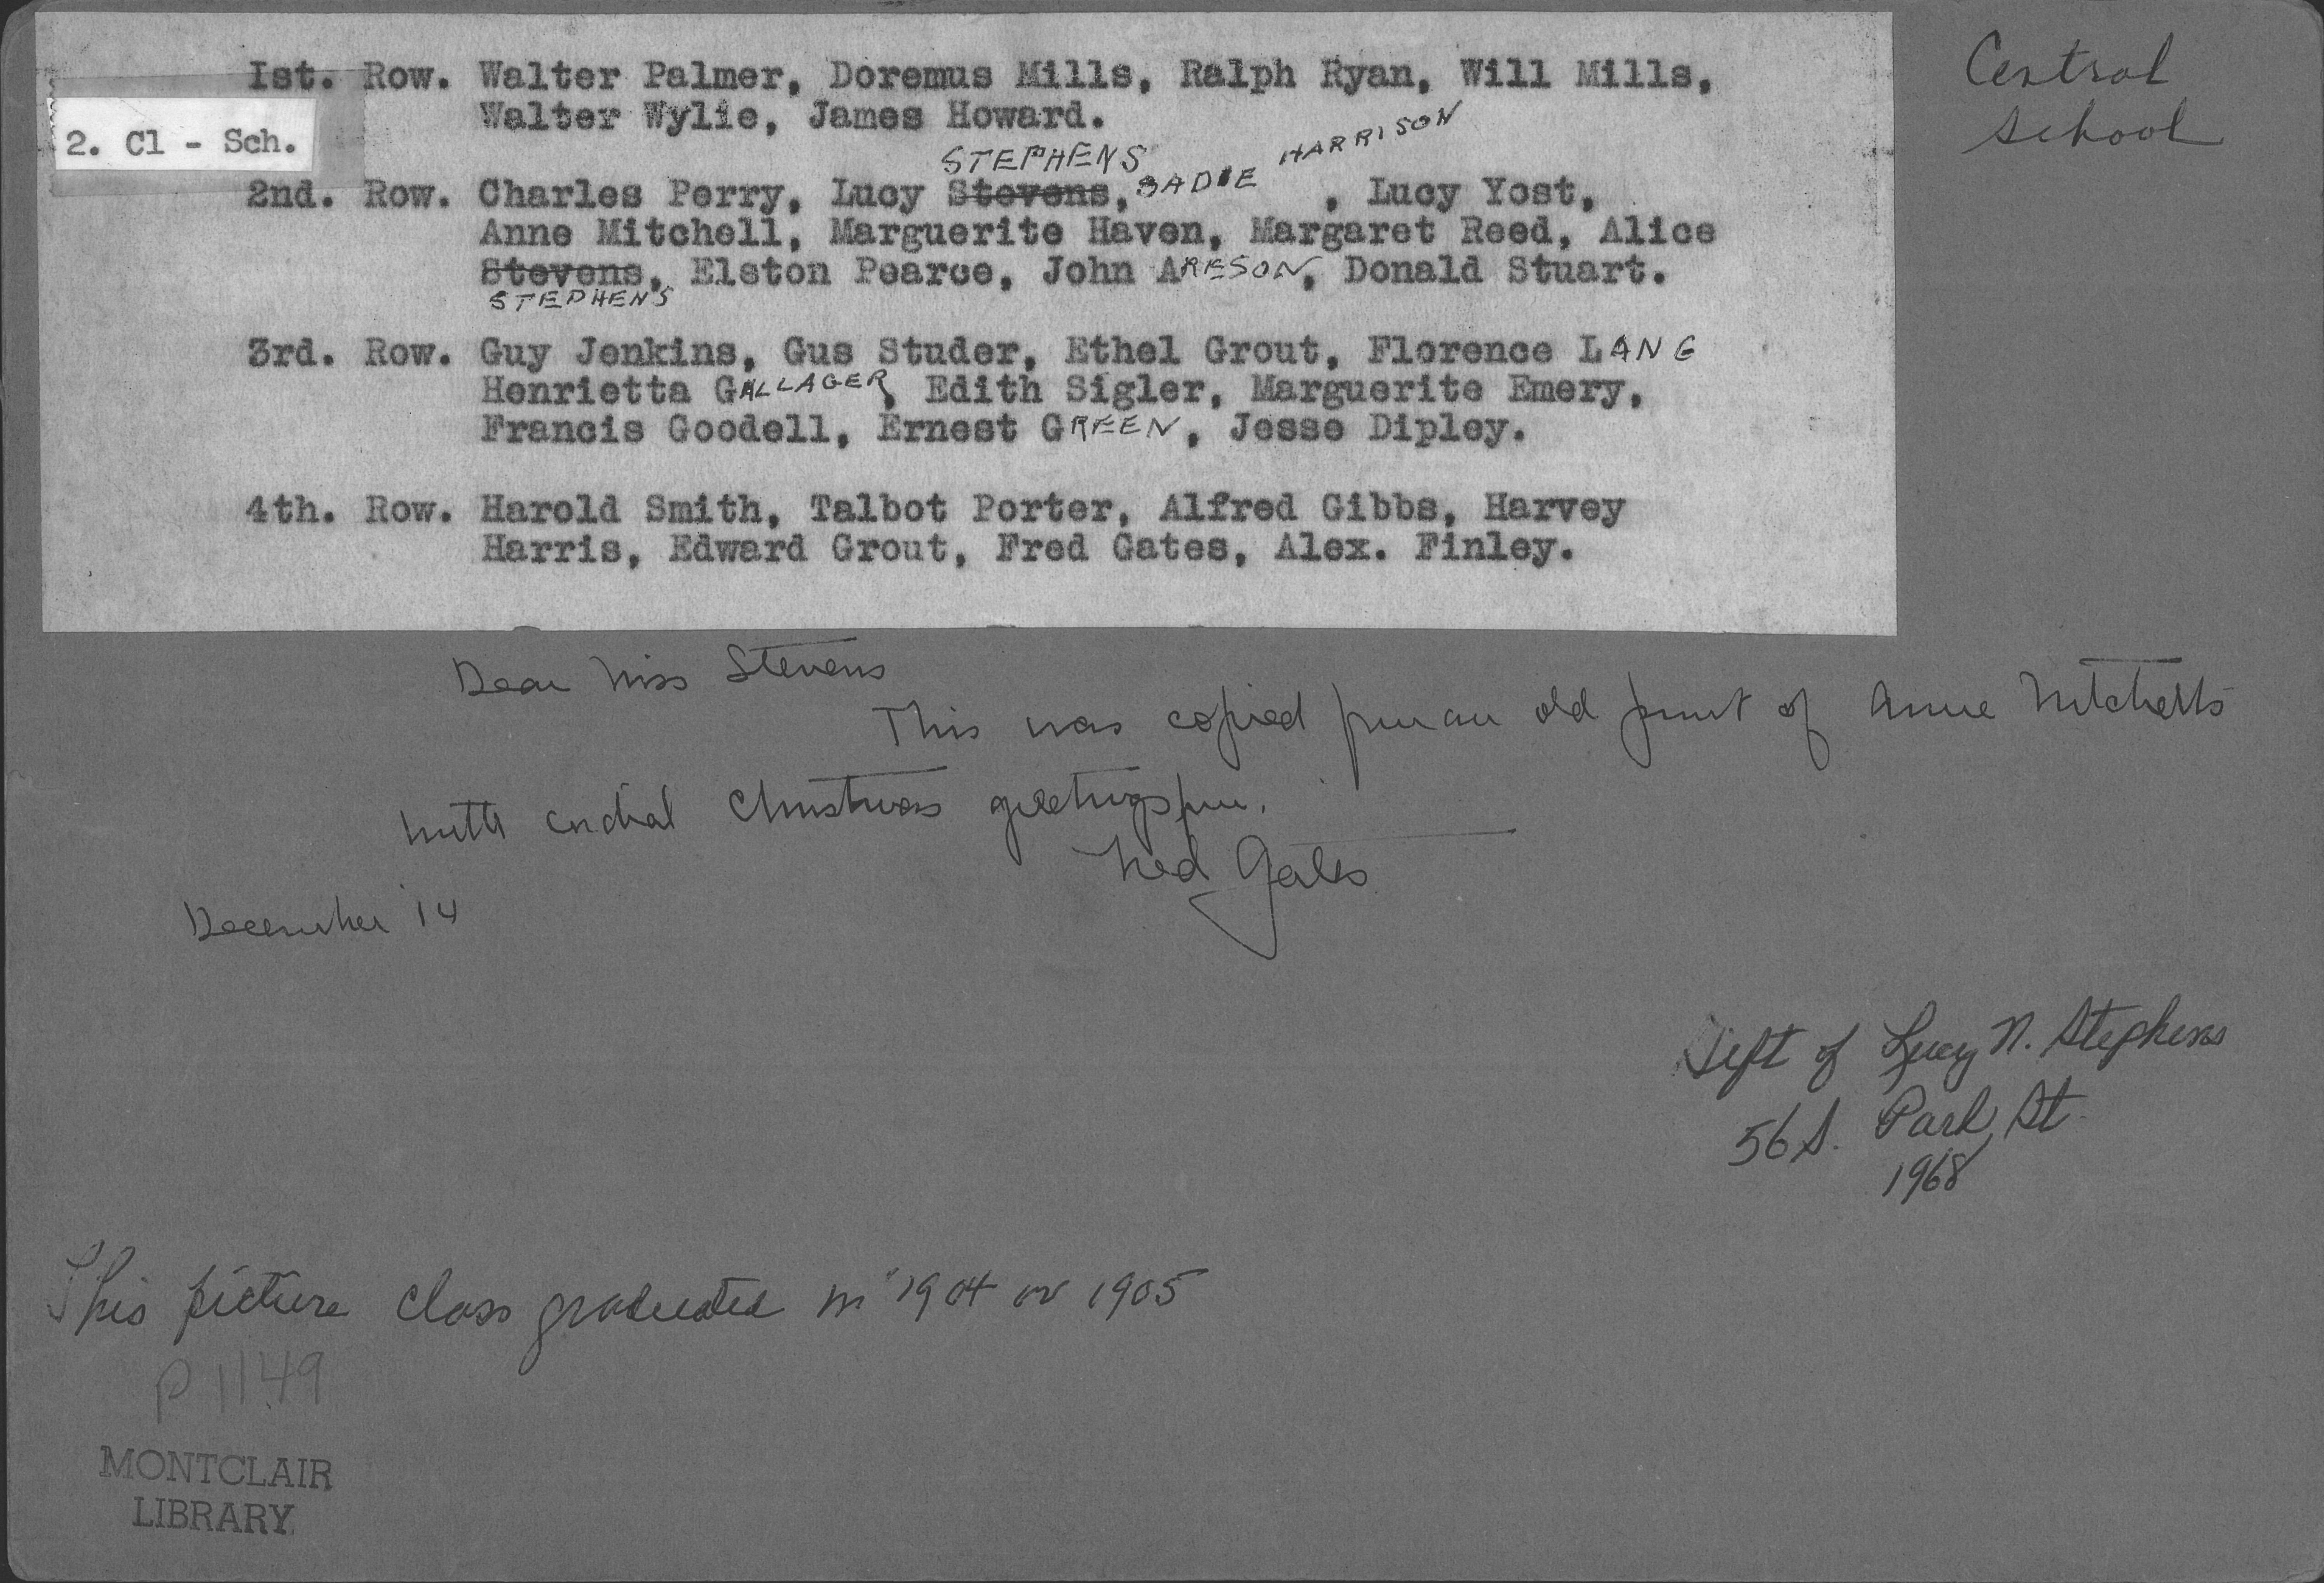 Central
School
Ist. Row. Walter Palmer, Doremus Mills, Ralph Ryan, Will Mills,
Walter Wylie, James Howard.
2. Cl - Sch.
STEPHENS SADIE HARRISON
2nd. Row. Charles Perry, Lucy Stevens, , Lucy Yost,
Anne Mitchell, Marguerite Haven, Margaret Reed, Alice
Stevens, Elston Pearce, John ARESON, Donald Stuart.
STEPHENS
3rd. Row. Guy Jenkins, Gus Studer, Ethel Grout, Florence LANG
Henrietta GALLAGER, Edith Sigler, Marguerite Emery,
Francis Goodell, Ernest GREEN, Jesse Dipley.
4th. Row. Harold Smith, Talbot Porter, Alfred Gibbs, Harvey
Harris, Edward Grout, Fred Gates, Alex. Finley.
Dear Miss Stevens
This was copied from an old print of Anne Mitchell's
with cordial Christmas greetings from.
Gates
December 14
Gift of Lucy N. Stephens
56 S. Park St.
1968
This picture class graduated in 1904 or 1905
P 1149
MONTCLAIR
LIBRARY